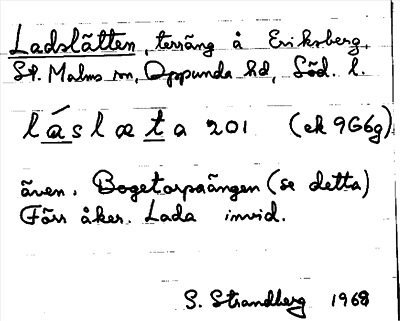 Ladslätten, terräng å Eriksberg,
St. Malms sn, Oppunda hd, Söd. l.
láslæta 201 (ek 9G6g)
även. Bogetorpaängen (se detta)
Förr åker. Lada invid.
S. Strandberg 1968